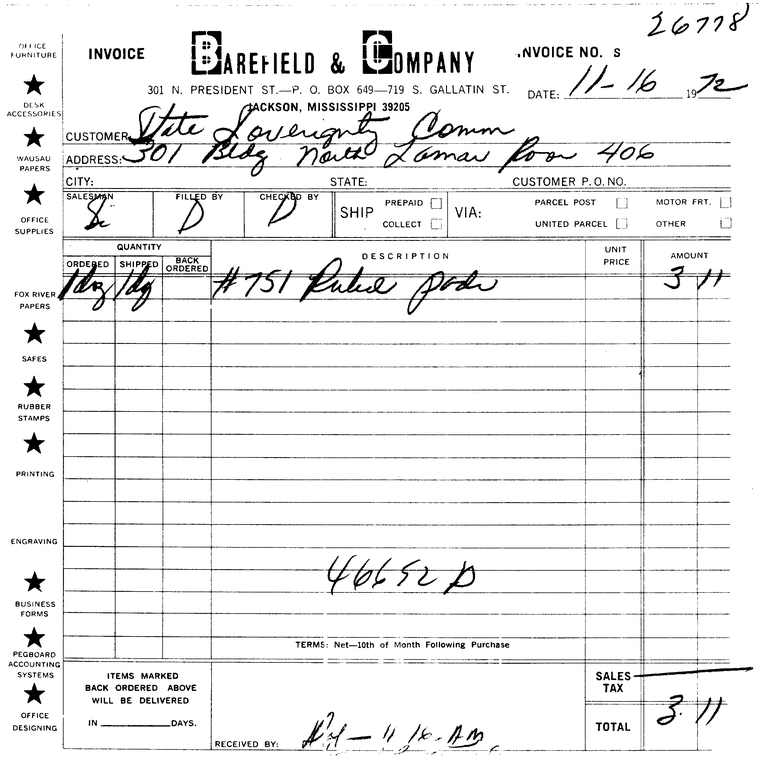 26778
INVOICE BAREFIELD & COMPANY INVOICE NO. S
301 N. PRESIDENT ST.—P. O. BOX 649—719 S. GALLATIN ST.
JACKSON, MISSISSIPPI 39205
DATE: 11-16 1972
CUSTOMER State Soverignty Comm
ADDRESS: 301 Bldg North Lamar Room 406
CITY: STATE: CUSTOMER P.O. NO.
SALESMAN FILLED BY D CHECKED BY D
SHIP PREPAID COLLECT VIA: PARCEL POST MOTOR FRT.
UNITED PARCEL OTHER
QUANTITY
ORDERED SHIPPED BACK ORDERED DESCRIPTION UNIT PRICE AMOUNT
1 doz 1 doz #751 Ruled pads 3 11
46652 D
TERMS: Net—10th of Month Following Purchase
ITEMS MARKED
BACK ORDERED ABOVE
WILL BE DELIVERED
IN DAYS.
RECEIVED BY: 11 16- AM
SALES TAX —
TOTAL 3. 11
OFFICE FURNITURE
DESK ACCESSORIES
WAUSAU PAPERS
OFFICE SUPPLIES
FOX RIVER PAPERS
SAFES
RUBBER STAMPS
PRINTING
ENGRAVING
BUSINESS FORMS
PEGBOARD ACCOUNTING SYSTEMS
OFFICE DESIGNING